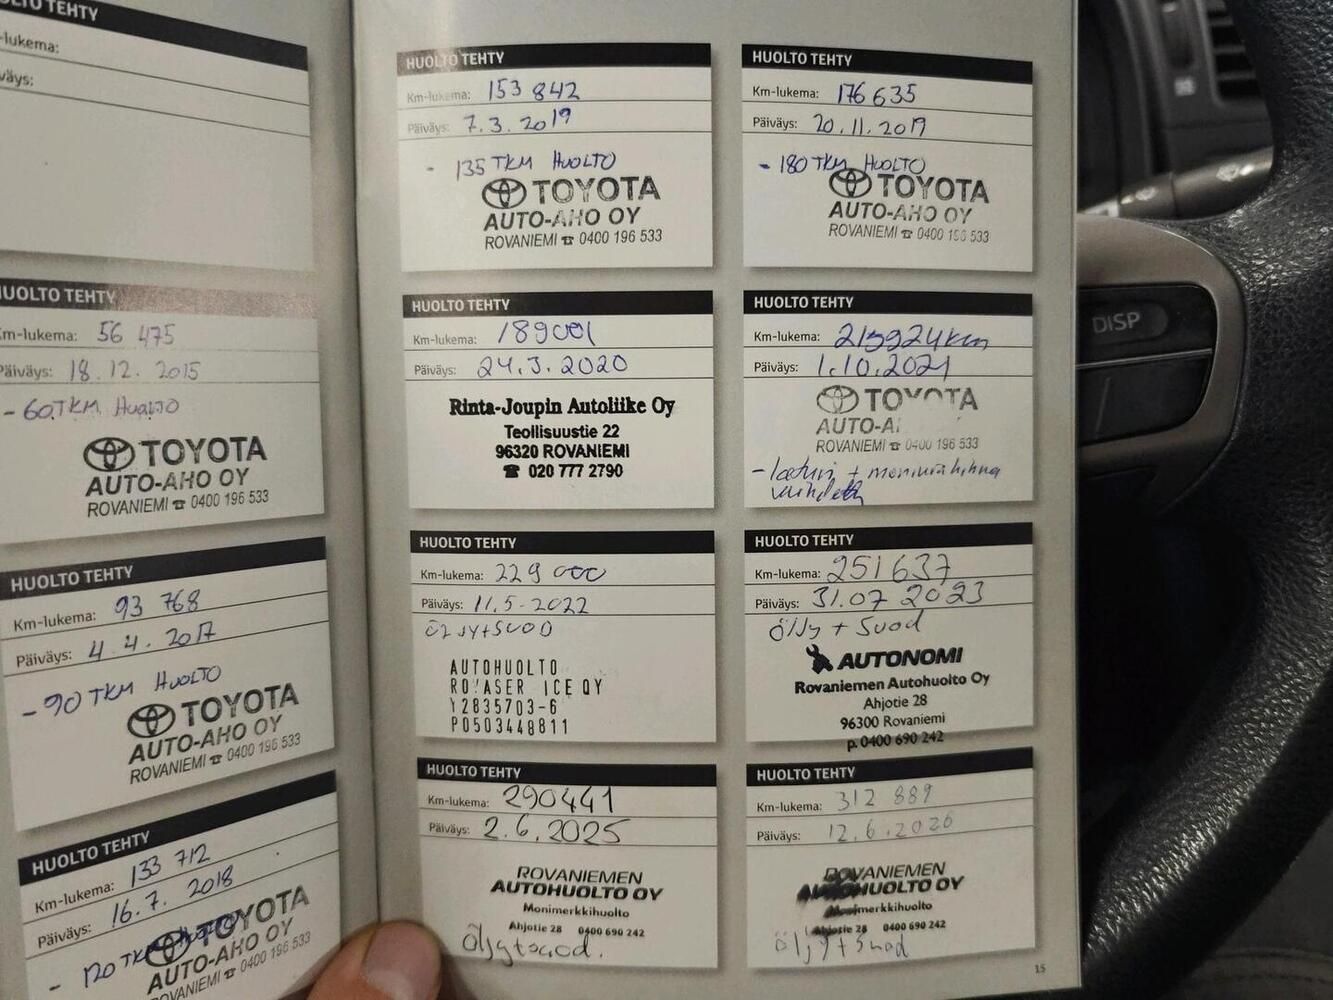 HUOLTO TEHTY
Km-lukema:
Päiväys:
HUOLTO TEHTY
Km-lukema: 56 475
Päiväys: 18.12.2015
- 60 TKM HUOLTO
TOYOTA
AUTO-AHO OY
ROVANIEMI ☎ 0400 196 533
HUOLTO TEHTY
Km-lukema: 93 768
Päiväys: 4.4.2017
- 90 TKM HUOLTO
TOYOTA
AUTO-AHO OY
ROVANIEMI ☎ 0400 196 533
HUOLTO TEHTY
Km-lukema: 133 712
Päiväys: 16.7.2018
- 120 TKM
TOYOTA
AUTO-AHO OY
ROVANIEMI ☎ 0400 196 533
HUOLTO TEHTY
Km-lukema: 153 842
Päiväys: 7.3.2019
- 135 TKM HUOLTO
TOYOTA
AUTO-AHO OY
ROVANIEMI ☎ 0400 196 533
HUOLTO TEHTY
Km-lukema: 176 635
Päiväys: 20.11.2019
- 180 TKM HUOLTO
TOYOTA
AUTO-AHO OY
ROVANIEMI ☎ 0400 196 533
HUOLTO TEHTY
Km-lukema: 189001
Päiväys: 24.3.2020
Rinta-Joupin Autoliike Oy
Teollisuustie 22
96320 ROVANIEMI
☎ 020 777 2790
HUOLTO TEHTY
Km-lukema: 219924km
Päiväys: 1.10.2021
TOYOTA
AUTO-A
ROVANIEMI ☎ 0400 196 533
- laturi + moniurahihna
HUOLTO TEHTY
Km-lukema: 229 000
Päiväys: 11.5-2022
ÖLJY+SUOD
AUTOHUOLTO
ROVASER ICE OY
Y2835703-6
P0503448811
HUOLTO TEHTY
Km-lukema: 251637
Päiväys: 31.07 2023
Öljy + Suod
AUTONOMI
Rovaniemen Autohuolto Oy
Ahjotie 28
96300 Rovaniemi
p. 0400 690 242
HUOLTO TEHTY
Km-lukema: 290441
Päiväys: 2.6.2025
ROVANIEMEN
AUTOHUOLTO OY
Monimerkkihuolto
Ahjotie 28 0400 690 242
Öljy+suod.
HUOLTO TEHTY
Km-lukema: 312 889
Päiväys: 12.6.2026
ROVANIEMEN
AUTOHUOLTO OY
Monimerkkihuolto
Ahjotie 28 0400 690 242
Öljy+Suod
15
DISP